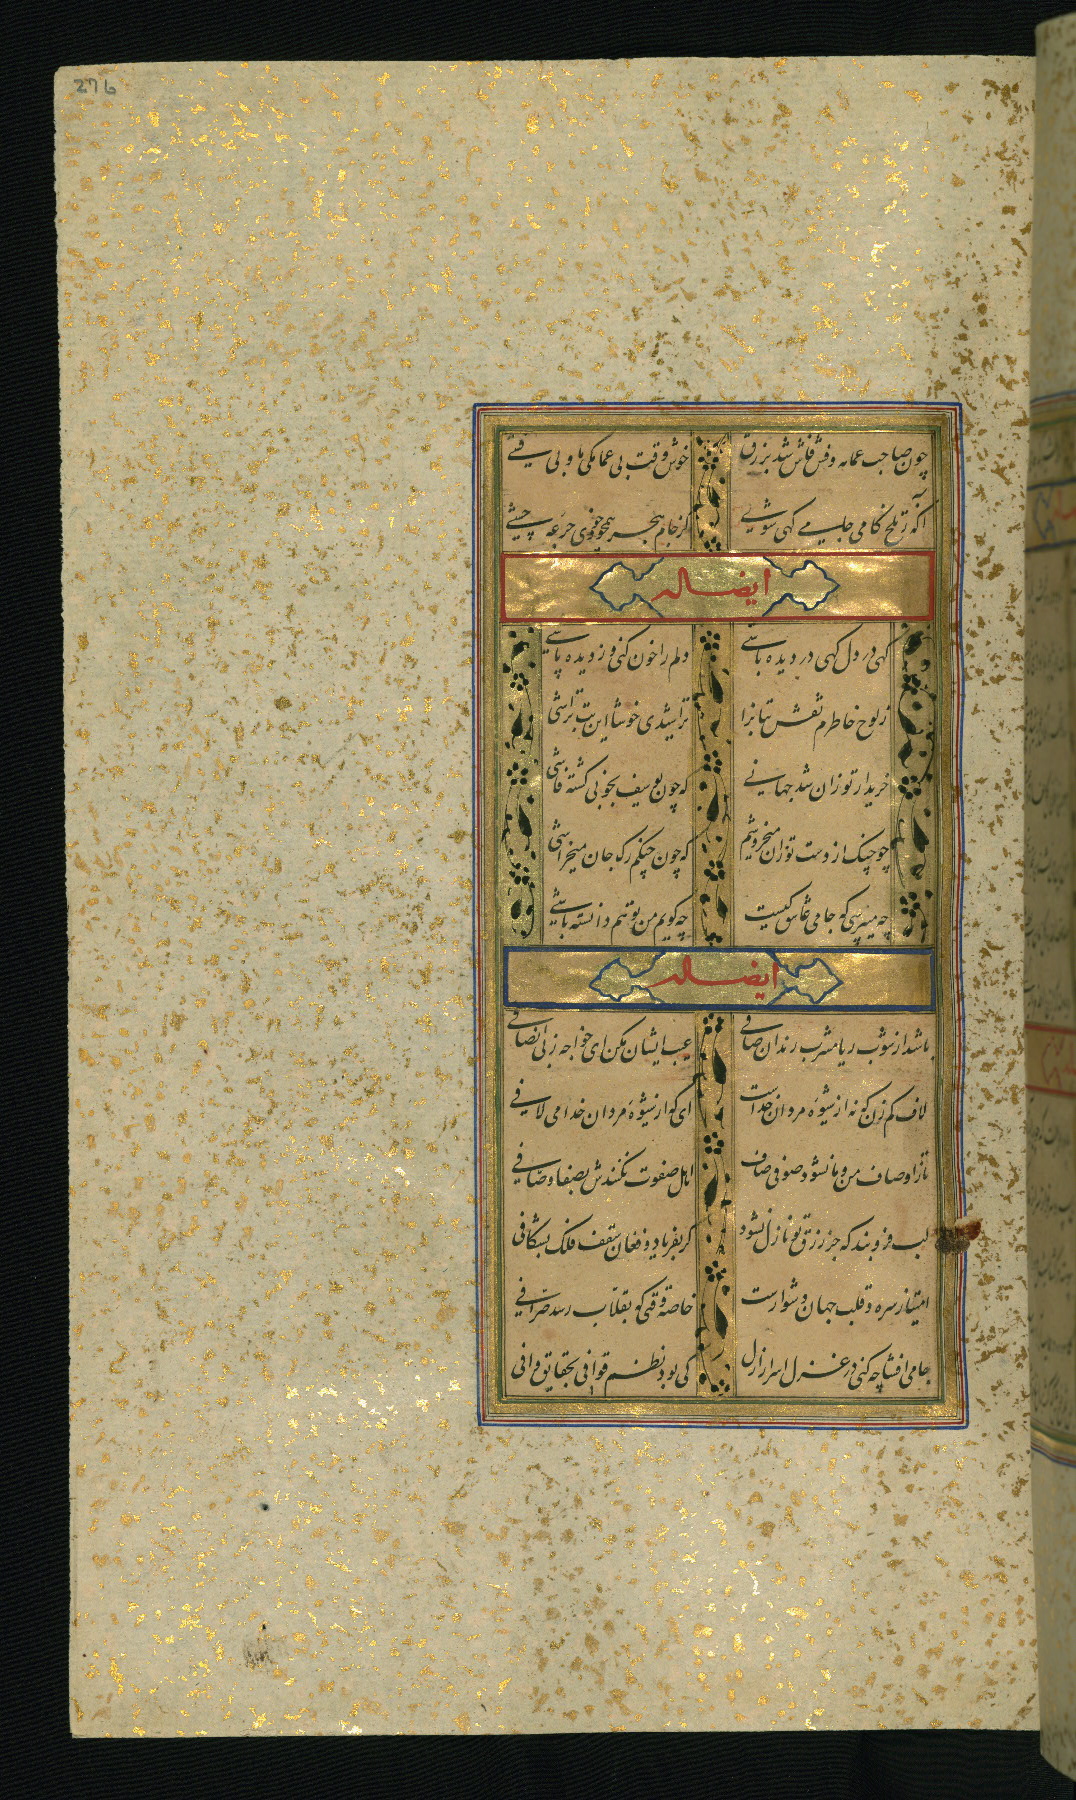 276
چون صاحب عمامه و فش فاش شد بزرق
خوش وقت بی عمامکی ما و بی فشی
آنکه ز تلخ کامی جامی کهی شوی
کز جام هجر همچو خودی جرعه چشی
ایضا له
کهی در دل کهی در دیده باشی
دلم را خون کنی وز دیده پاشی
ز لوح خاطرم نقش بتانرا
تراشیدی خوشا این بت تراشی
خریدار تو زان شد جهانی
که چون یوسف بخوبی کشته فاشی
چو چنک از دست تو زان میخروشم
که چون چنکم رک جان میخراشی
چه میپرسی که جامی عاشق کیست
چه کویم من تو هم دانسته باشی
ایضا له
باشد از شوب ریا مشرب رندان صافی
عیب ایشان مکن ای خواجه ز بی انصافی
لاف کم زن که نه از شیوه مردان خداست
ای که از شیوه مردان خدا می لافی
تا ز اوصاف من و ما نشود صوفی صاف
اهل صفوت نکنندش بصفا وصافی
لب فرو بند که جز رزق تو نازل نشود
کر بفریاد و فغان سقف فلک بشکافی
امتیاز سره و قلب جهان دشوارست
خاصه وقتی که بقلاب رسد صرافی
جامی افشا چه کنی در غزل اسرار ازل
کی بود نظم قوافی بحقایق وافی